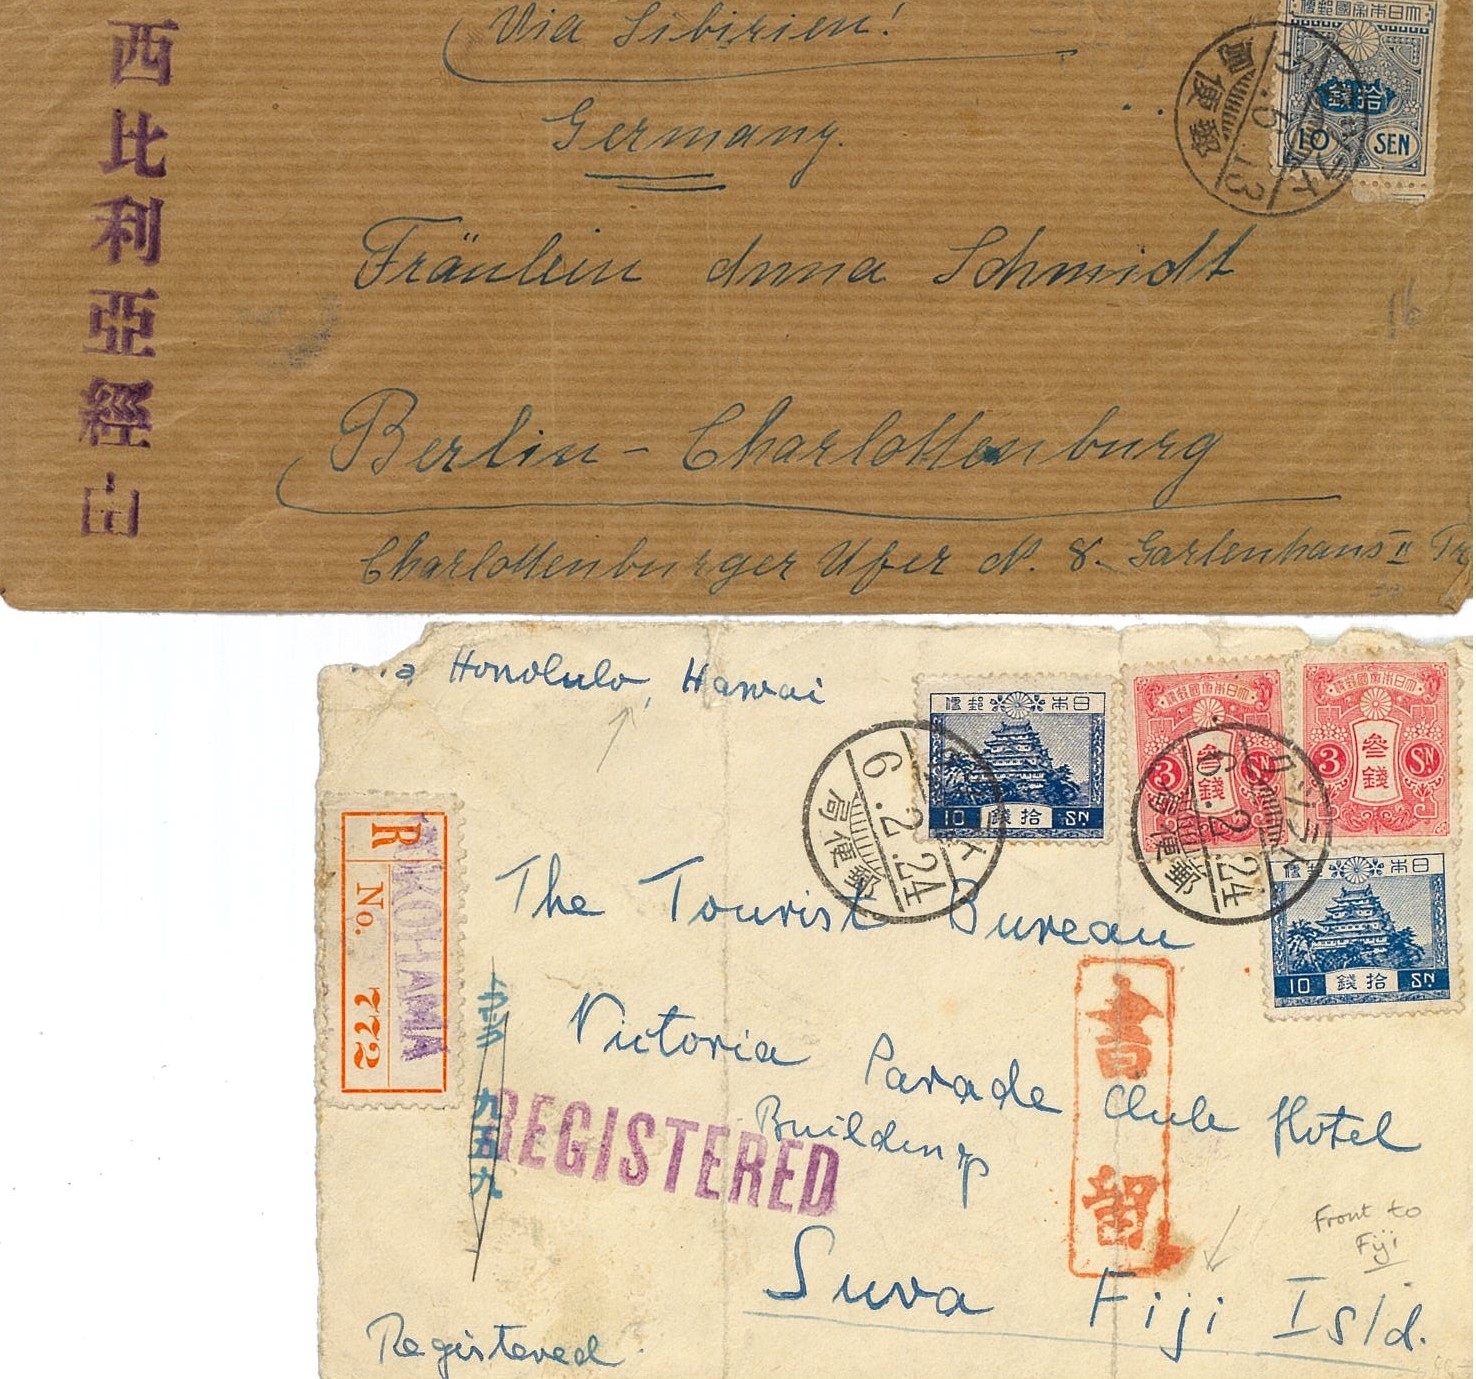 西比利亞經由
Via Sibirien!
Germany.
Fräulein Anna Schmidt
Berlin - Charlottenburg
Charlottenburger Ufer N. 8. Gartenhaus II Tr
大日本帝國郵便
拾錢
10 SEN
郵便局
Honolulu, Hawai
日本郵便
10 拾錢 SN
大日本帝國郵便
3 参錢 SN
大日本帝國郵便
3 参錢 SN
日本郵便
10 拾錢 SN
6.2.24
郵便局
クシラト
6.2.24
郵便局
R
No. 772
YOKOHAMA
The Tourist Bureau
Victoria Parade Club Hotel
Building
Suva Fiji Isld.
九五九
REGISTERED
書留
Front to
Fiji
Registered